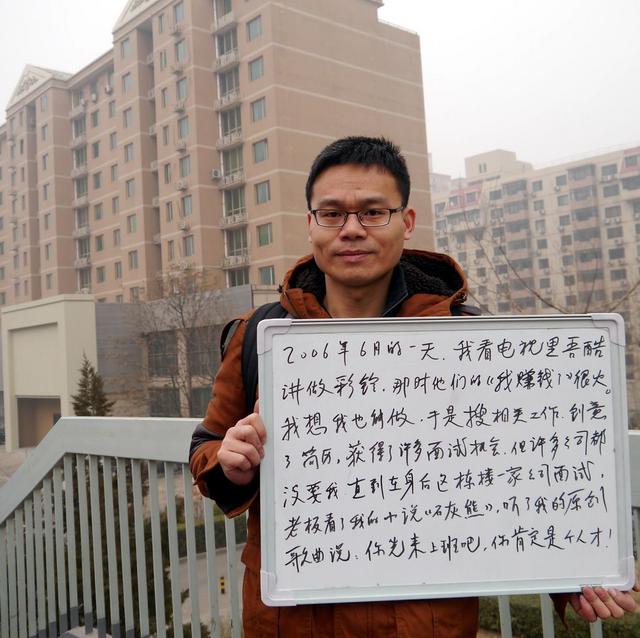 2006年6月的一天，我看电视里吾酷
讲做彩铃，那时他们的《我赚钱了》很火。
我想我也能做，于是搜相关工作，创意
了简历，获得了许多面试机会，但许多公司都
没要我，直到在身后这栋楼一家公司面试，
老板看了我的小说《石灰熊》，听了我的原创
歌曲说：你先来上班吧，你肯定是个人才！